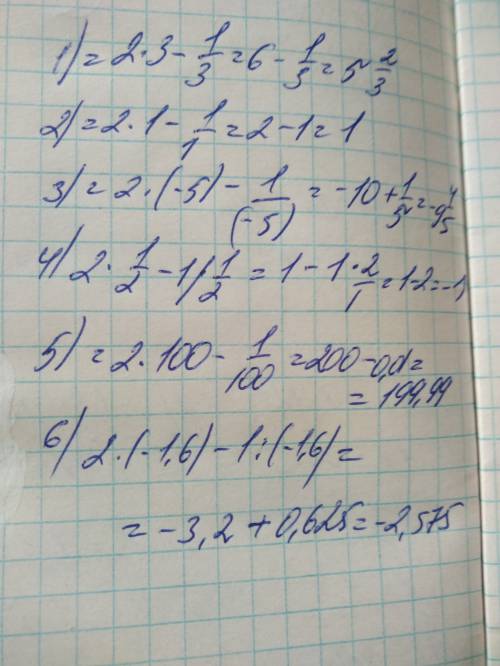 1) = 2·3 - 1/3 = 6 - 1/3 = 5 2/3
2) = 2·1 - 1/1 = 2 - 1 = 1
3) = 2·(-5) - 1/(-5) = -10 + 1/5 = -9 4/5
4) 2·1/2 - 1/1/2 = 1 - 1·2/1 = 1-2 = -1
5) = 2·100 - 1/100 = 200 - 0,01 =
= 199,99
6) 2·(-1,6) - 1:(-1,6) =
= -3,2 + 0,625 = -2,575